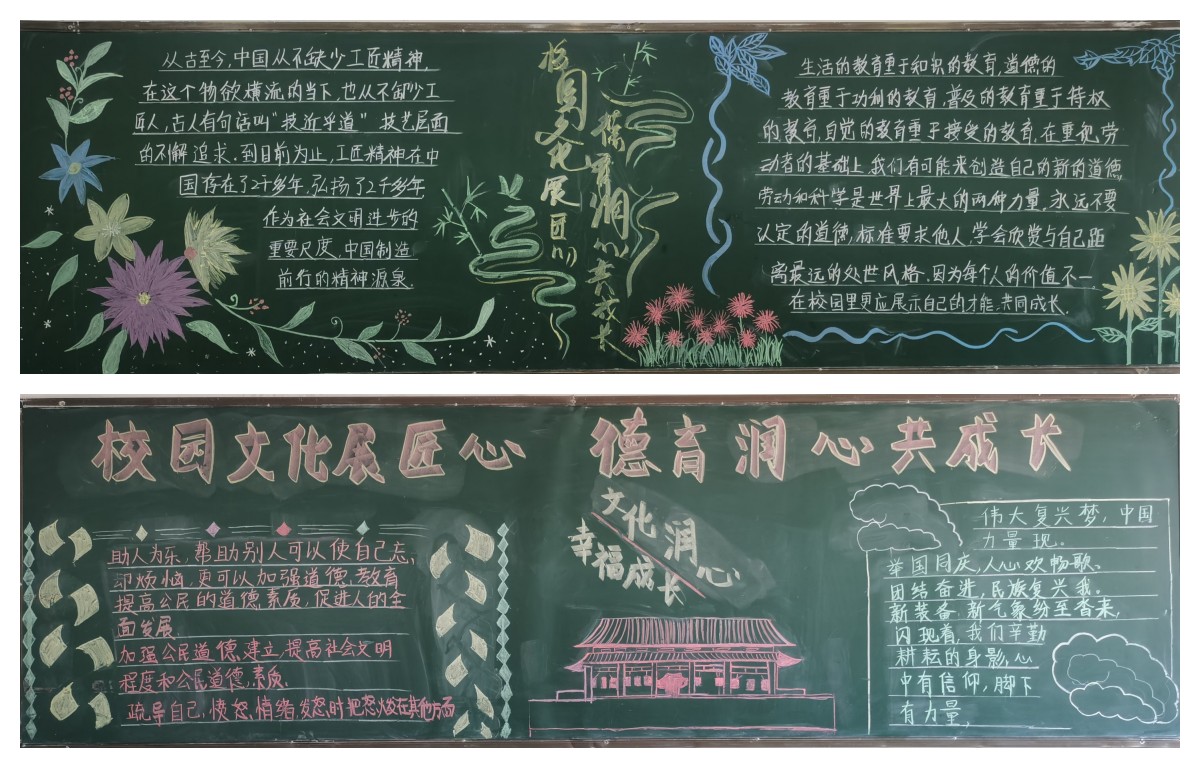 从古至今,中国从不缺少工匠精神,
在这个物欲横流的当下,也从不缺少工
匠人,古人有句话叫“技近乎道” 技艺层面
的不懈追求.到目前为止,工匠精神在中
国存在了2千多年,弘扬了2千多年
作为社会文明进步的
重要尺度,中国制造
前行的精神源泉.
校园文化展匠心
德育润心共成长
生活的教育重于知识的教育,道德的
教育重于功利的教育,普及的教育重于特权
的教育,自觉的教育重于接受的教育,在重视劳
动者的基础上,我们有可能来创造自己的新的道德,
劳动和科学是世界上最大的两种力量,永远不要
认定的道德,标准要求他人,学会欣赏与自己距
离最远的处世风格.因为每个人的价值不一
在校园里更应展示自己的才能,共同成长.
校园文化展匠心 德育润心共成长
助人为乐,帮助别人可以使自己忘,
却烦恼,更可以加强道德,教育
提高公民的道德,素质,促进人的全
面发展.
加强公民道德,建立,提高社会文明
程度和公民道德,素质.
疏导自己,愤怒,情绪,发怒时把怒火放在其他方面
文化润心
幸福成长
伟大复兴梦,中国
力量现。
举国同庆,人心欢畅歌、
团结奋进,民族复兴我.
新装备,新气象纷至沓来,
闪现着,我们辛勤
耕耘的身影,心
中有信仰,脚下
有力量,